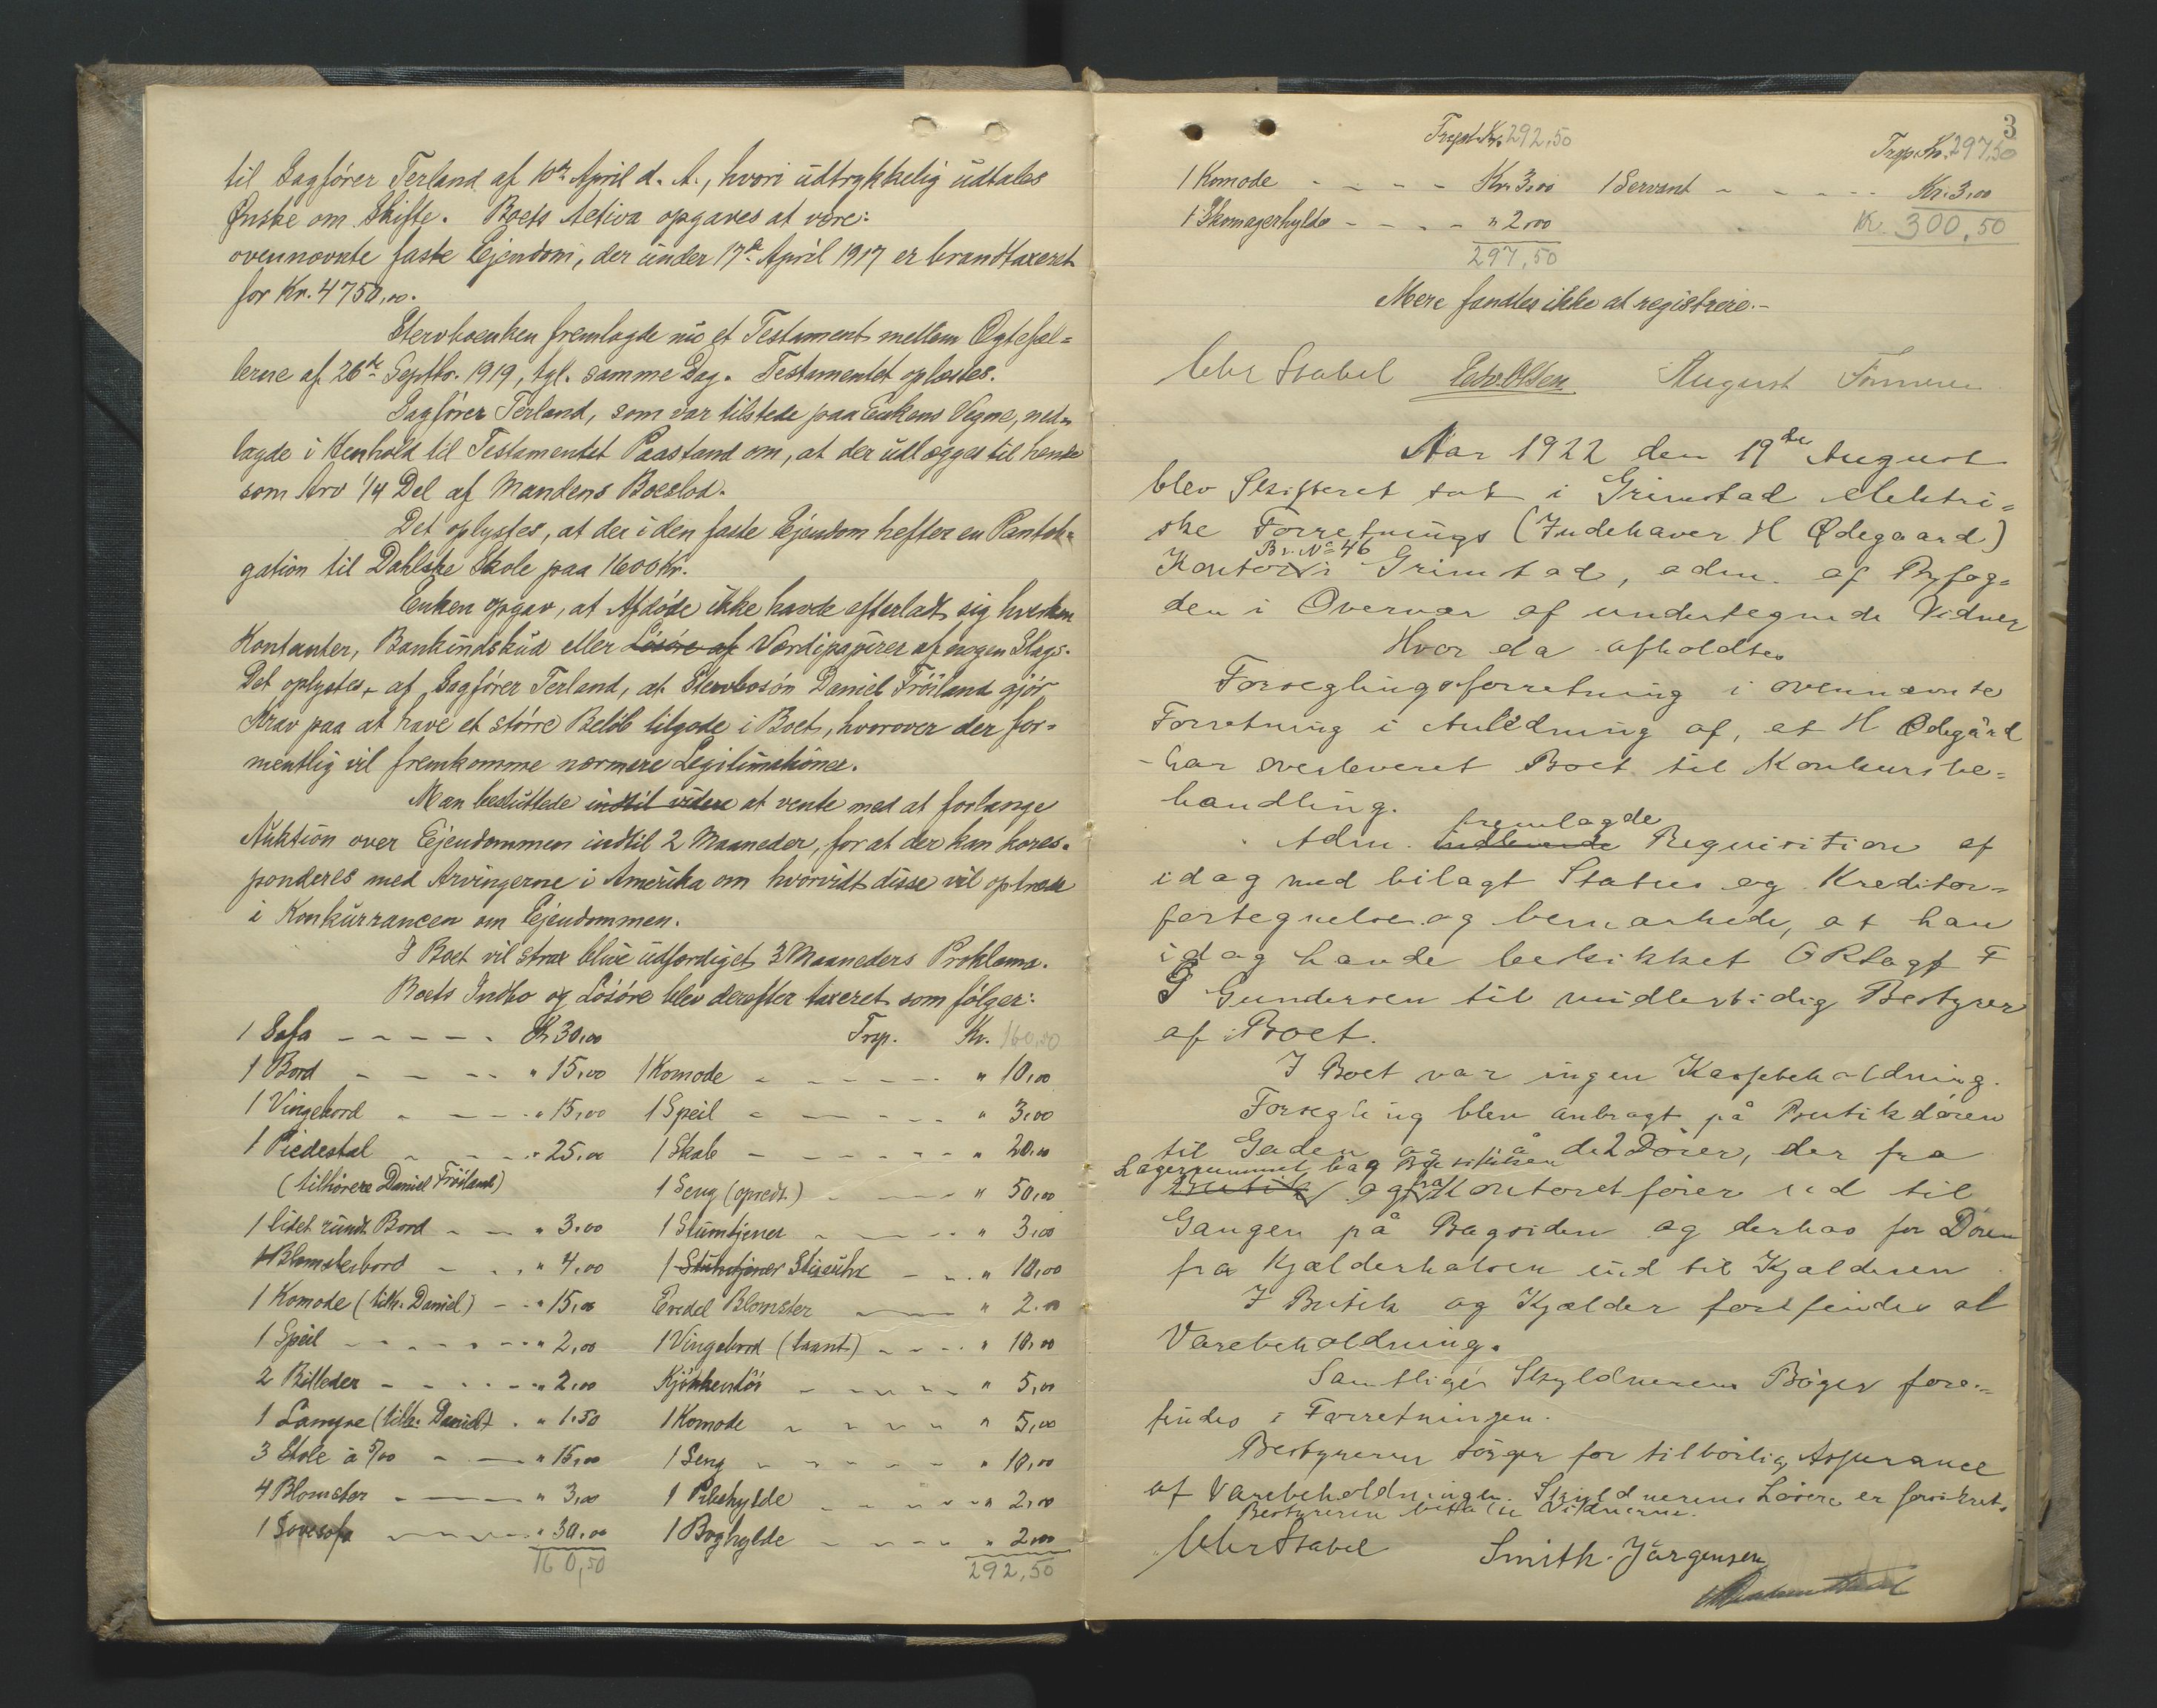 til Sagfører Terland af 10de April d. A., hvori udtrykkelig udtales
Ønske om Skifte. Boets Activa opgaves at være:
ovennævnte faste Ejendom, der under 17de April 1917 er brandtaxeret
for Kr. 4750,00.
Stervboenken fremlagde nu et Testament mellem Ægtefæl=
lerne af 26de Septbr. 1919, tgl. samme Dag. Testamentet oplæstes.
Sagfører Terland, som var tilstede paa Enkens Vegne, ned=
lagde i Henhold til Testamentet Paastand om, at der udlægges til hende
som Arv 1/4 Del af Mandens Boeslod.
Det oplystes, at der i den faste Ejendom hefter en Pantob=
gation til Dahlske Skole paa 1600 Kr.
Enken opgav, at Afdøde ikke havde efterladt sig hverken
Kontanter, Bankindskud eller Løsøre af Værdipapirer af nogen Slags.
Det oplystes af Sagfører Terland, at Stervbosøn Daniel Frøisland gjør
Krav paa at have et større Beløb tilgode i Boet, hvorover der for=
mentlig vil fremkomme nærmere Legitimationer.
Man besluttede indtil videre at vente med at forlange
Auktion over Ejendommen indtil 2 Maaneder, for at der kan korres=
ponderes med Arvingerne i Amerika om hvorvidt disse vil optræde
i Konkurrancen om Ejendommen.
I Boet vil strax blive udfærdiget 3 Maaneders Proklama.
Boets Indbo og Løsøre blev derefter taxeret som følger:
1 Sofa - - - - - Kr 30,00 Trsp. Kr. 160,50
1 Bord - - - - " 15,00 1 Komode - - - - - " 10,00
1 Vingebord - - - " 15,00 1 Speil - - - - - " 3,00
1 Piedestal - - - " 25,00 1 Skab - - - - - " 20,00
(tilhører Daniel Frøisland) 1 Seng (opredt.) - - - " 50,00
1 lidet rundt Bord - - - " 3,00 1 Stumtjener - - - - " 3,00
1 Blomsterbord - - - " 4,00 1 Stumtjener Stueuhr - - - " 10,00
1 Komode (tilh. Daniel) - - " 15,00 Endel Blomster - - - " 2,00
1 Speil - - - - - " 2,00 1 Vingebord (laant) - - - " 10,00
2 Billeder - - - - - " 2,00 Kjøkkentøi - - - - - " 5,00
1 Lampe (tilh. Daniel) . " 1.50 1 Komode - - - - - " 5,00
3 Stole à 5/00 - - - " 15,00 1 Seng - - - - - " 10,00
4 Blomster - - - " 3,00 1 Pibehylde - - - - - " 2,00
1 Sovesofa - - - - " 30,00 1 Boghylde - - - - - " 2,00
160,50 292,50
3
Trspt. Kr. 292,50 Trsp. Kr. 297,50
1 Komode - - - - Kr. 3,00 1 Servant - - - - - Kr. 3,00
1 Skomagerhylde - - - - " 2,00 Kr. 300,50
297,50
Mere fandtes ikke at registrere.-
Chr Stabel Edv. Olsen August
Aar 1922 den 19de August
blev Skifteret sat i Grimstad elektri=
ske Forretnings (Indehaver H Ødegaard)
Br. No 46
Kontor i Grimstad, adm. af Byfog=
den i Overvær af undertegnede Vidner
Hvor da afholdtes
Forseglingsforretning i ovennævnte
Forretning i Anledning af, at H Ødegård
har overleveret Boet til Konkursbe=
handling.
fremlagde
Adm. Requisition af
idag med bilagt Status og Kreditor=
fortegnelse og bemærkede, at han
idag havde beskikket ORsagf F
G Gundersen til midlertidig Bestyrer
af Boet.
I Boet var ingen Kassebeholdning.
Forsegling blev anbragt på Butikdøren
til Gaden og på de 2 Dører, der fra
Lagerrummet bag Butikken
Butik og fra Kontoret fører ud til
Gangen på Bagsiden og derhos for Døren
fra Kjælderhalsen ind til Kjælderen
I Butik og Kjælder forefindes al
Varebeholdning.
Samtlige Skyldnerens Bøger fore=
findes i Forretningen.
Bestyreren sørger for tilbørlig Assurance
af Varebeholdningen. Skyldnerens Løsøre er forsikret.
Bestyreren betalte Vidnerne.
Chr Stabel Smith-Jørgensen